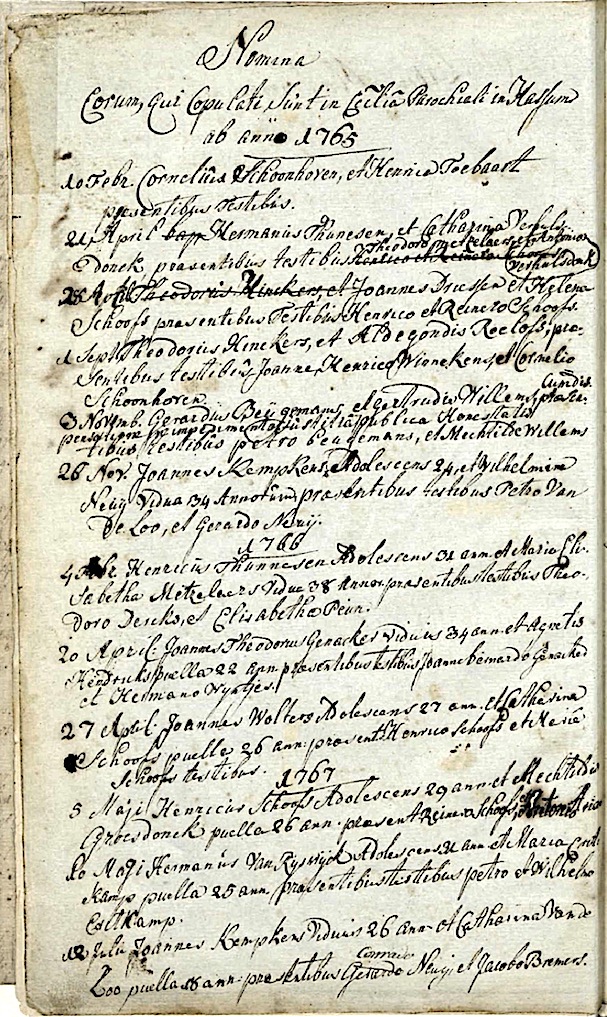 Nomina
Eorum, qui Copulati Sunt in Ecclia Parochiali in Hassum
ab anno 1765
10 Febr. Cornelius Schoonhoven, et Henrica Toebaart
praesentibus testibus.
21 April bap Hermanus Thunesen, et Catharina Verhuls-
donck praesentibus testibus Theodoro Metzelaers et Antonio
Henrico et Reinero Schoofs Verhulsdonk
28 April Theodorus Hinckers et Joannes Driessen et Helena
Schoofs praesentibus Testibus Henrico et Reinero Schoofs.
1 Sept. Theodorus Henckers, et Aldegondis Roelofs, prae-
sentibus testibus, Joanne, Henrico Wionekens, et Cornelio
Schoonhoven.
3 Novemb. Gerardus Beugemans, et Gertrudis Willems, praesen-
impedimento justitia publica Honestatis
tibus testibus petro beugemans, et Mechtilde Willems
26 Nov. Joannes Kempkens, Adolescens 24, et Wilhelmina
Neuy Vidua 34 Annorum, praesentibus testibus Petro Van
De Loo, et Gerardo Neuij.
1766
4 Febr. Henricus Thunnesen Adolescens 31 ann et Maria Eli-
sabetha Metzelaers Vidua 38 Annor praesentibus testibus Theo-
doro Dercks, et Elisabetha Peun.
20 April. Joannes Theodorus Genacker Viduus 34 ann. et Agnetis
Hendricks puella 22 ann praesentibus testibus Joanne bernardo Genacker
et Hermano Wyntjes.
27 April. Joannes Wolters Adolescens 27 ann. et Catharina
Schoofs puella 26 ann: praesent: Henrico Schoofs et Maria
Schoofs testibus.
1767
5 Maji Henricus Schoofs Adolescens 29 ann. et Mechtildis
Groesdonck puella 26 ann: praesent Reinero Schoofs,
10 Maji Hermanus Van Ryswyck Adolescens 31 ann et Maria
Kamp puella 25 ann praesentibus testibus petro et Wilhelmo
Eeltkamp.
12 Julii Joannes Kempkens Viduus 26 ann et Catharina Van de
Conrado
Loo puella 18 ann: praesentibus Gerardo Neuy, et Jacobo Bremers.